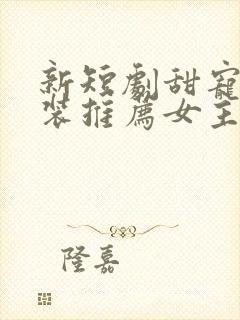 新短劇甜寵
裝推薦女主
隆嘉